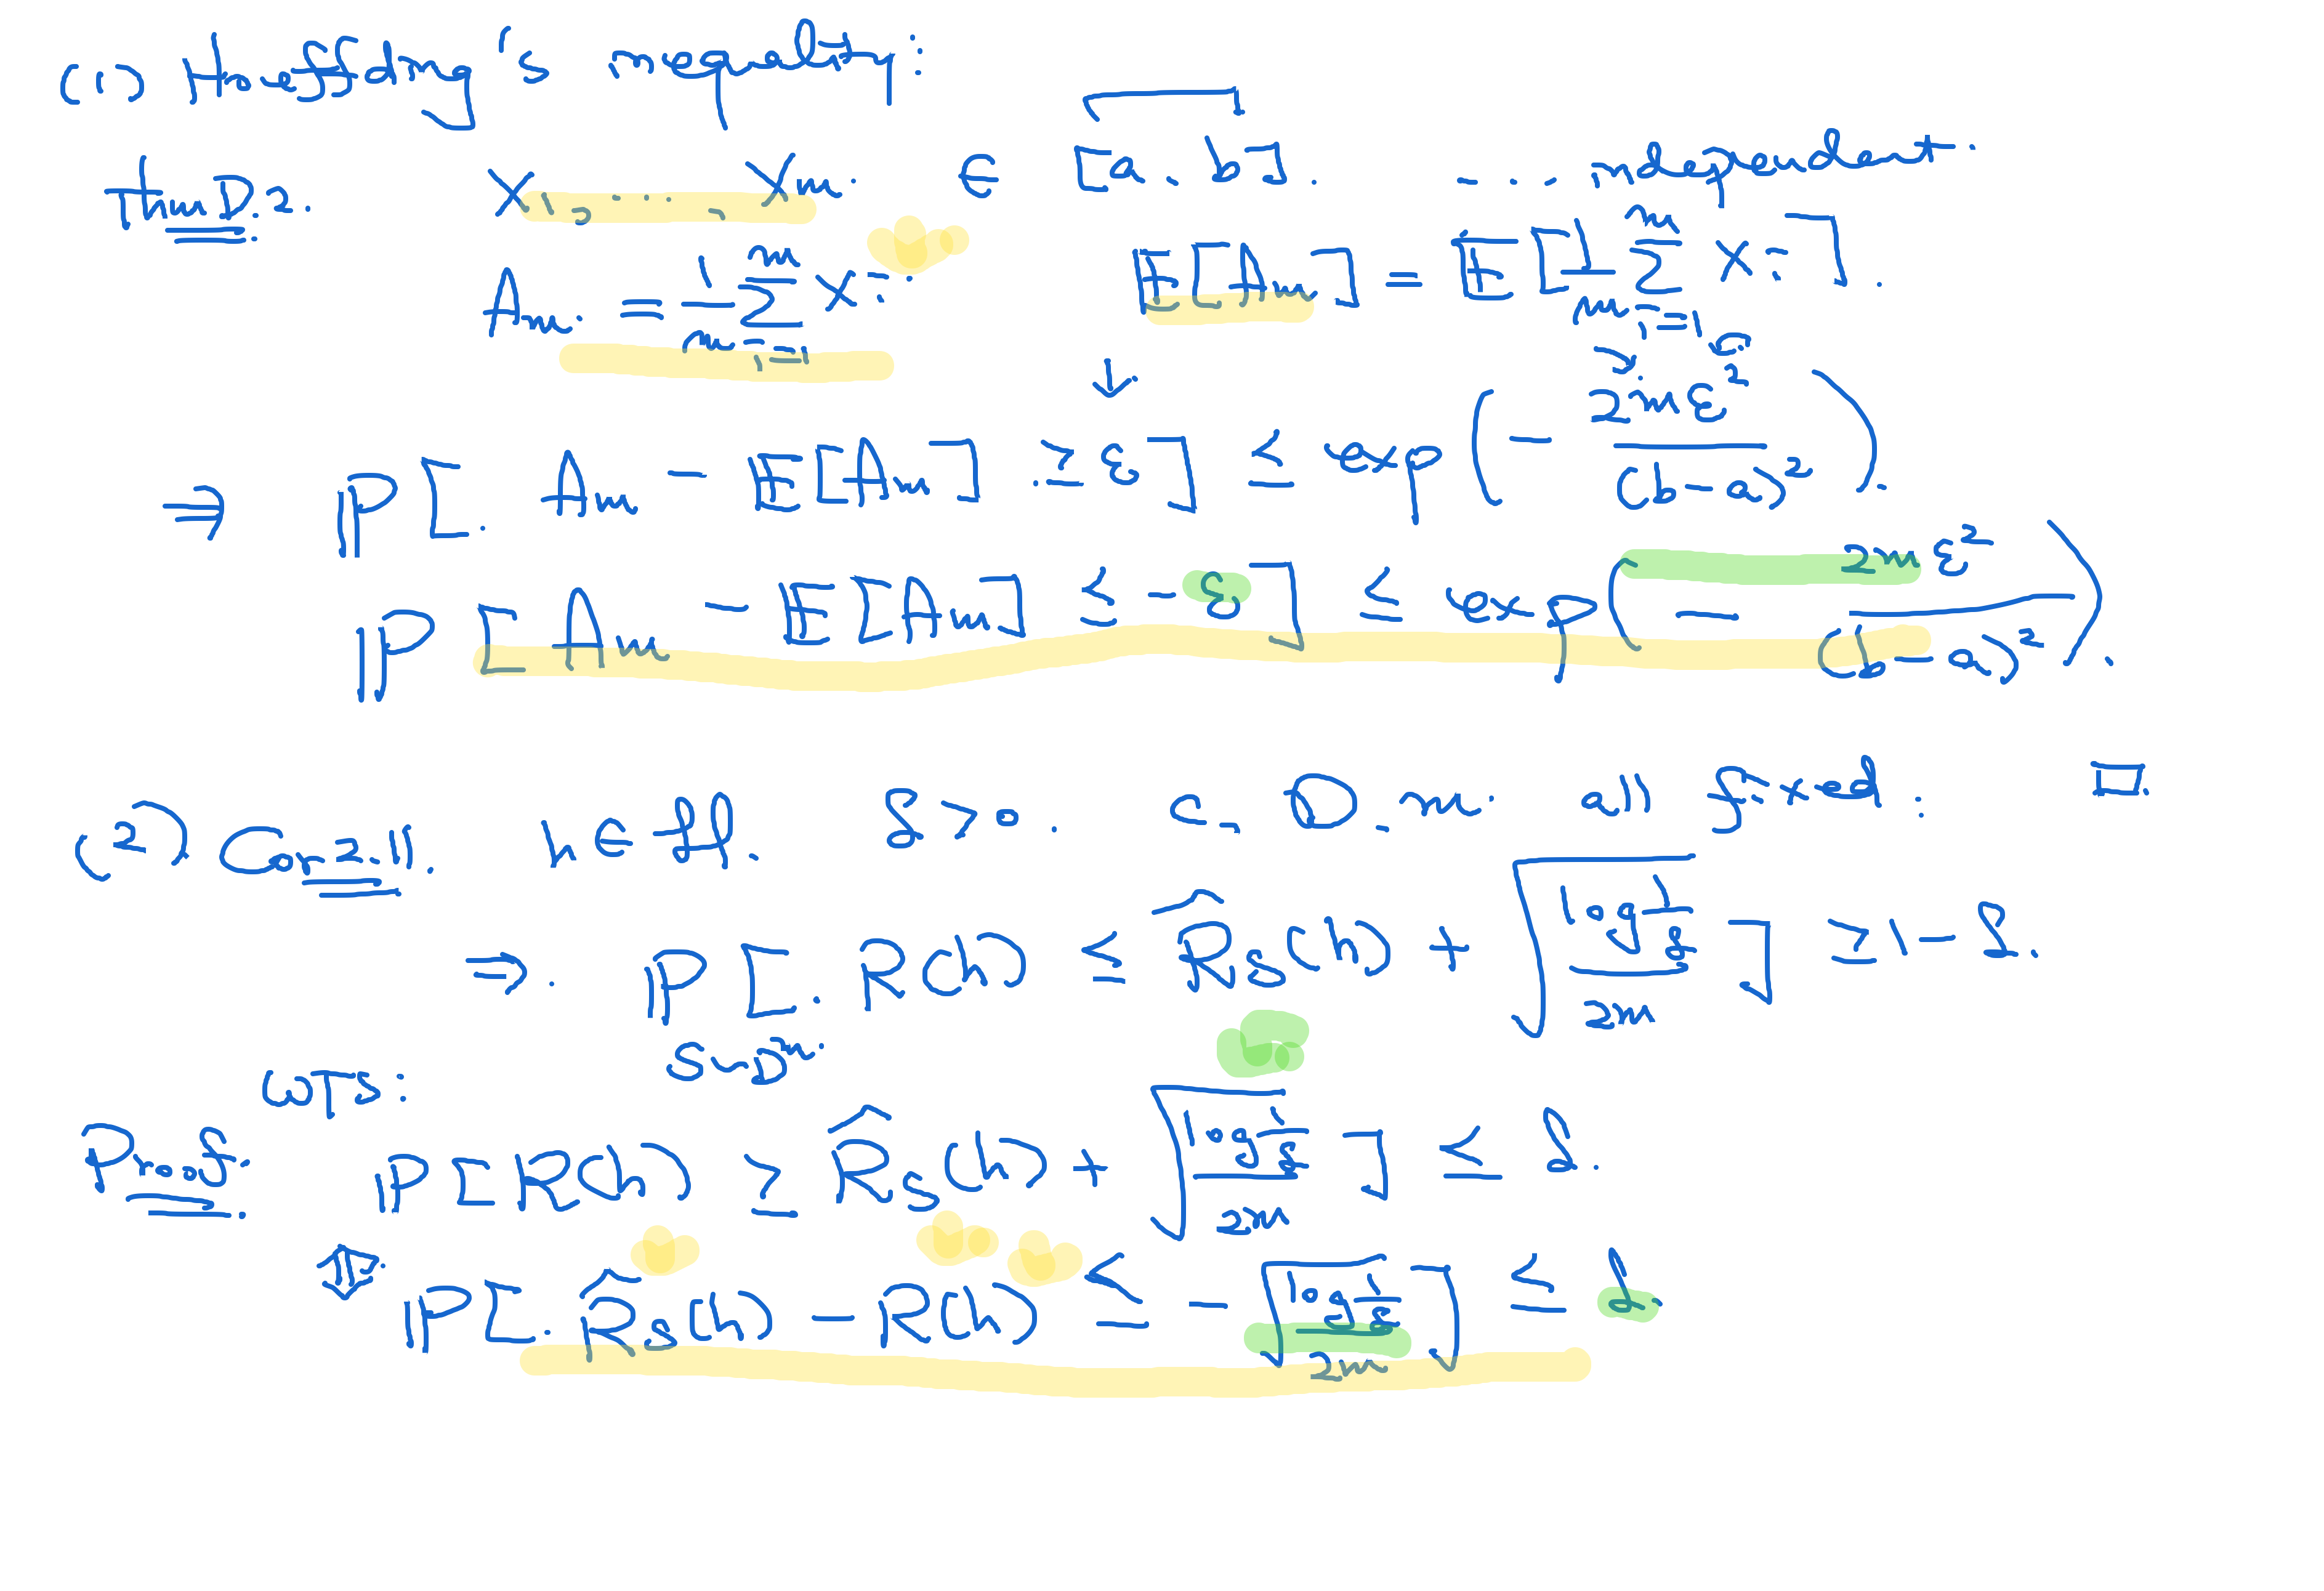 (1) Hoeffding's inequality:
Thm D.2. X₁, ..., Xₘ ∈ [a, b]. ... independent.
Aₘ = 1/m Σᵢ₌₁ᵐ Xᵢ E[Aₘ] = E[1/m Σᵢ₌₁ᵐ Xᵢ].
⇒ P[Aₘ - E[Aₘ] ≥ ε] ≤ exp(- 2mε²/(b-a)²).
P[Aₘ - E[Aₘ] ≤ -ε] ≤ exp(- 2mε²/(b-a)²).
(2) Cor 2.11. h ∈ H. δ > 0. c, D, m. all fixed:
⇒. P [R(h) ≤ R̂_S(h) + √(log 1/δ / 2m)] ≥ 1 - δ.
S~Dᵐ:
WTS:
Proof: P[R(h) ≥ R̂_S(h) + √(log 1/δ / 2m)] ≤ δ.
⇕ P[R̂_S(h) - R(h) ≤ - √(log 1/δ / 2m)] ≤ δ.